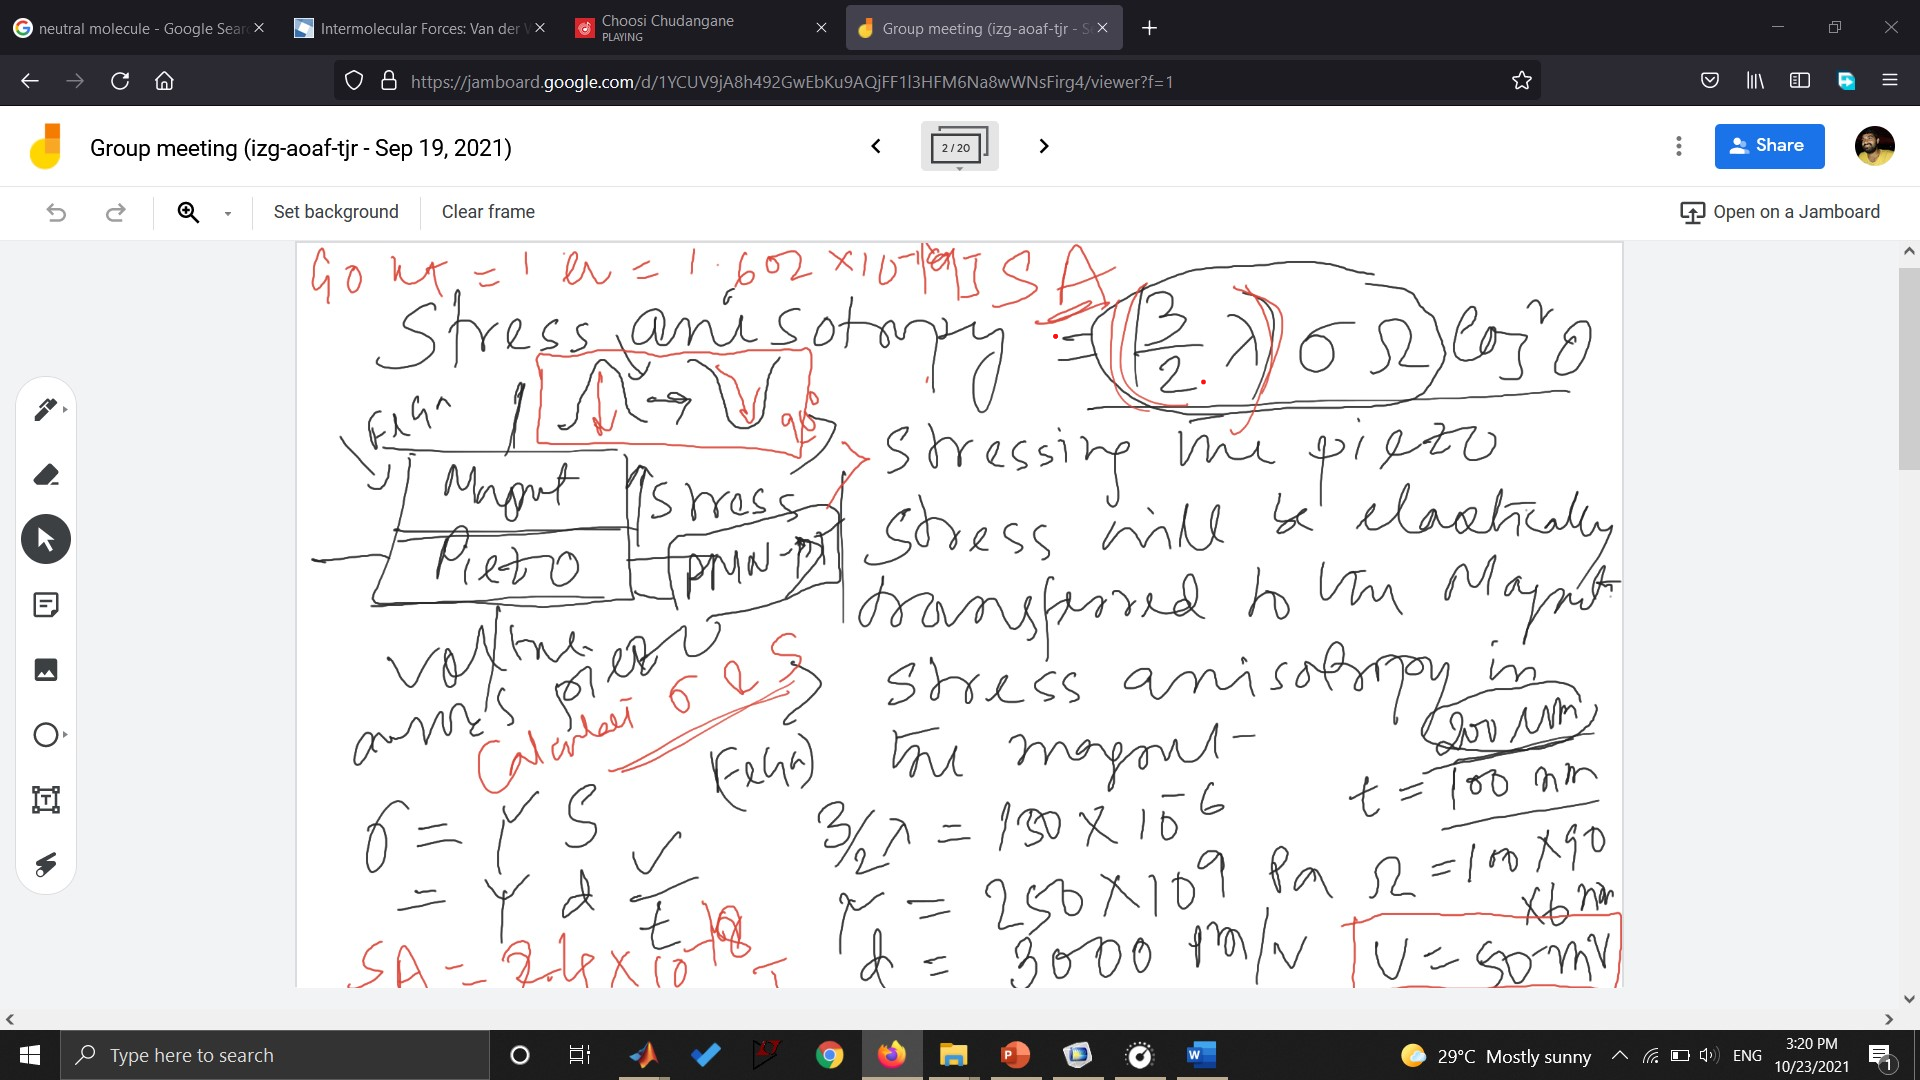 neutral molecule - Google Sear
Intermolecular Forces: Van der W
Choosi Chudangane
PLAYING
Group meeting (izg-aoaf-tjr - S
https://jamboard.google.com/d/1YCUV9jA8h492GwEbKu9AQjFF1l3HFM6Na8wWNsFirg4/viewer?f=1
Group meeting (izg-aoaf-tjr - Sep 19, 2021)
2 / 20
Share
Set background
Clear frame
Open on a Jamboard
= 1 ev = 1.602 ×10 J SA
Stress anisotropy = (3/2 λ) σ Ω Cos² θ
FeGa
90°
Magnet
stress
Piezo
PMN-PT
stressing the piezo
stress will be elastically
transferred to the Magnet
stress anisotropy in
the magnet
voltage
across piezo
Calculate σ & S
(FeGa)
200 nm
t = 100 nm
σ = Y S
= Y d V/t
3/2 λ = 150 × 10⁻⁶
Y = 250 × 10⁹ Pa
d = 3000 pm/V
Ω = 100 × 90
× 6 nm
V = 50 mV
Type here to search
29°C Mostly sunny
ENG
3:20 PM
10/23/2021
1